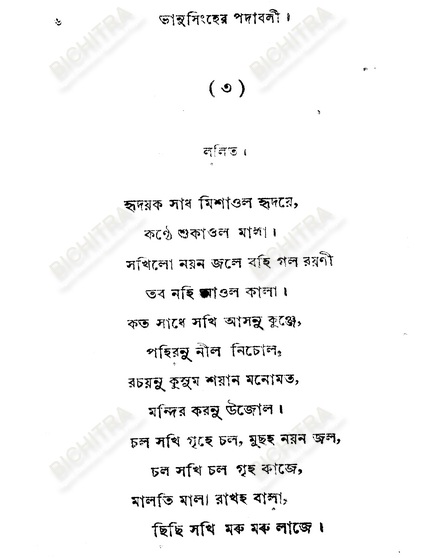 ৬ ভানুসিংহের পদাবলী।
( ৩ )
ললিত।
হৃদয়ক সাধ মিশাওল হৃদয়ে,
কণ্ঠে শুকাওল মালা।
সখিলো নয়ন জলে বহি গল রয়ণী
তব নহি আওল কালা।
কত সাধে সখি আসনু কুঞ্জে,
পহিরনু নীল নিচোল,
রচয়নু কুসুম শয়ান মনোমত,
মন্দির করনু উজোল।
চল সখি গৃহে চল, মুছহ নয়ন জল,
চল সখি চল গৃহ কাজে,
মালতি মালা রাখহ বালা,
ছিছি সখি মরু মরু লাজে।
BICHITRA
BICHITRA
BICHITRA
BICHITRA
BICHITRA
BICHITRA